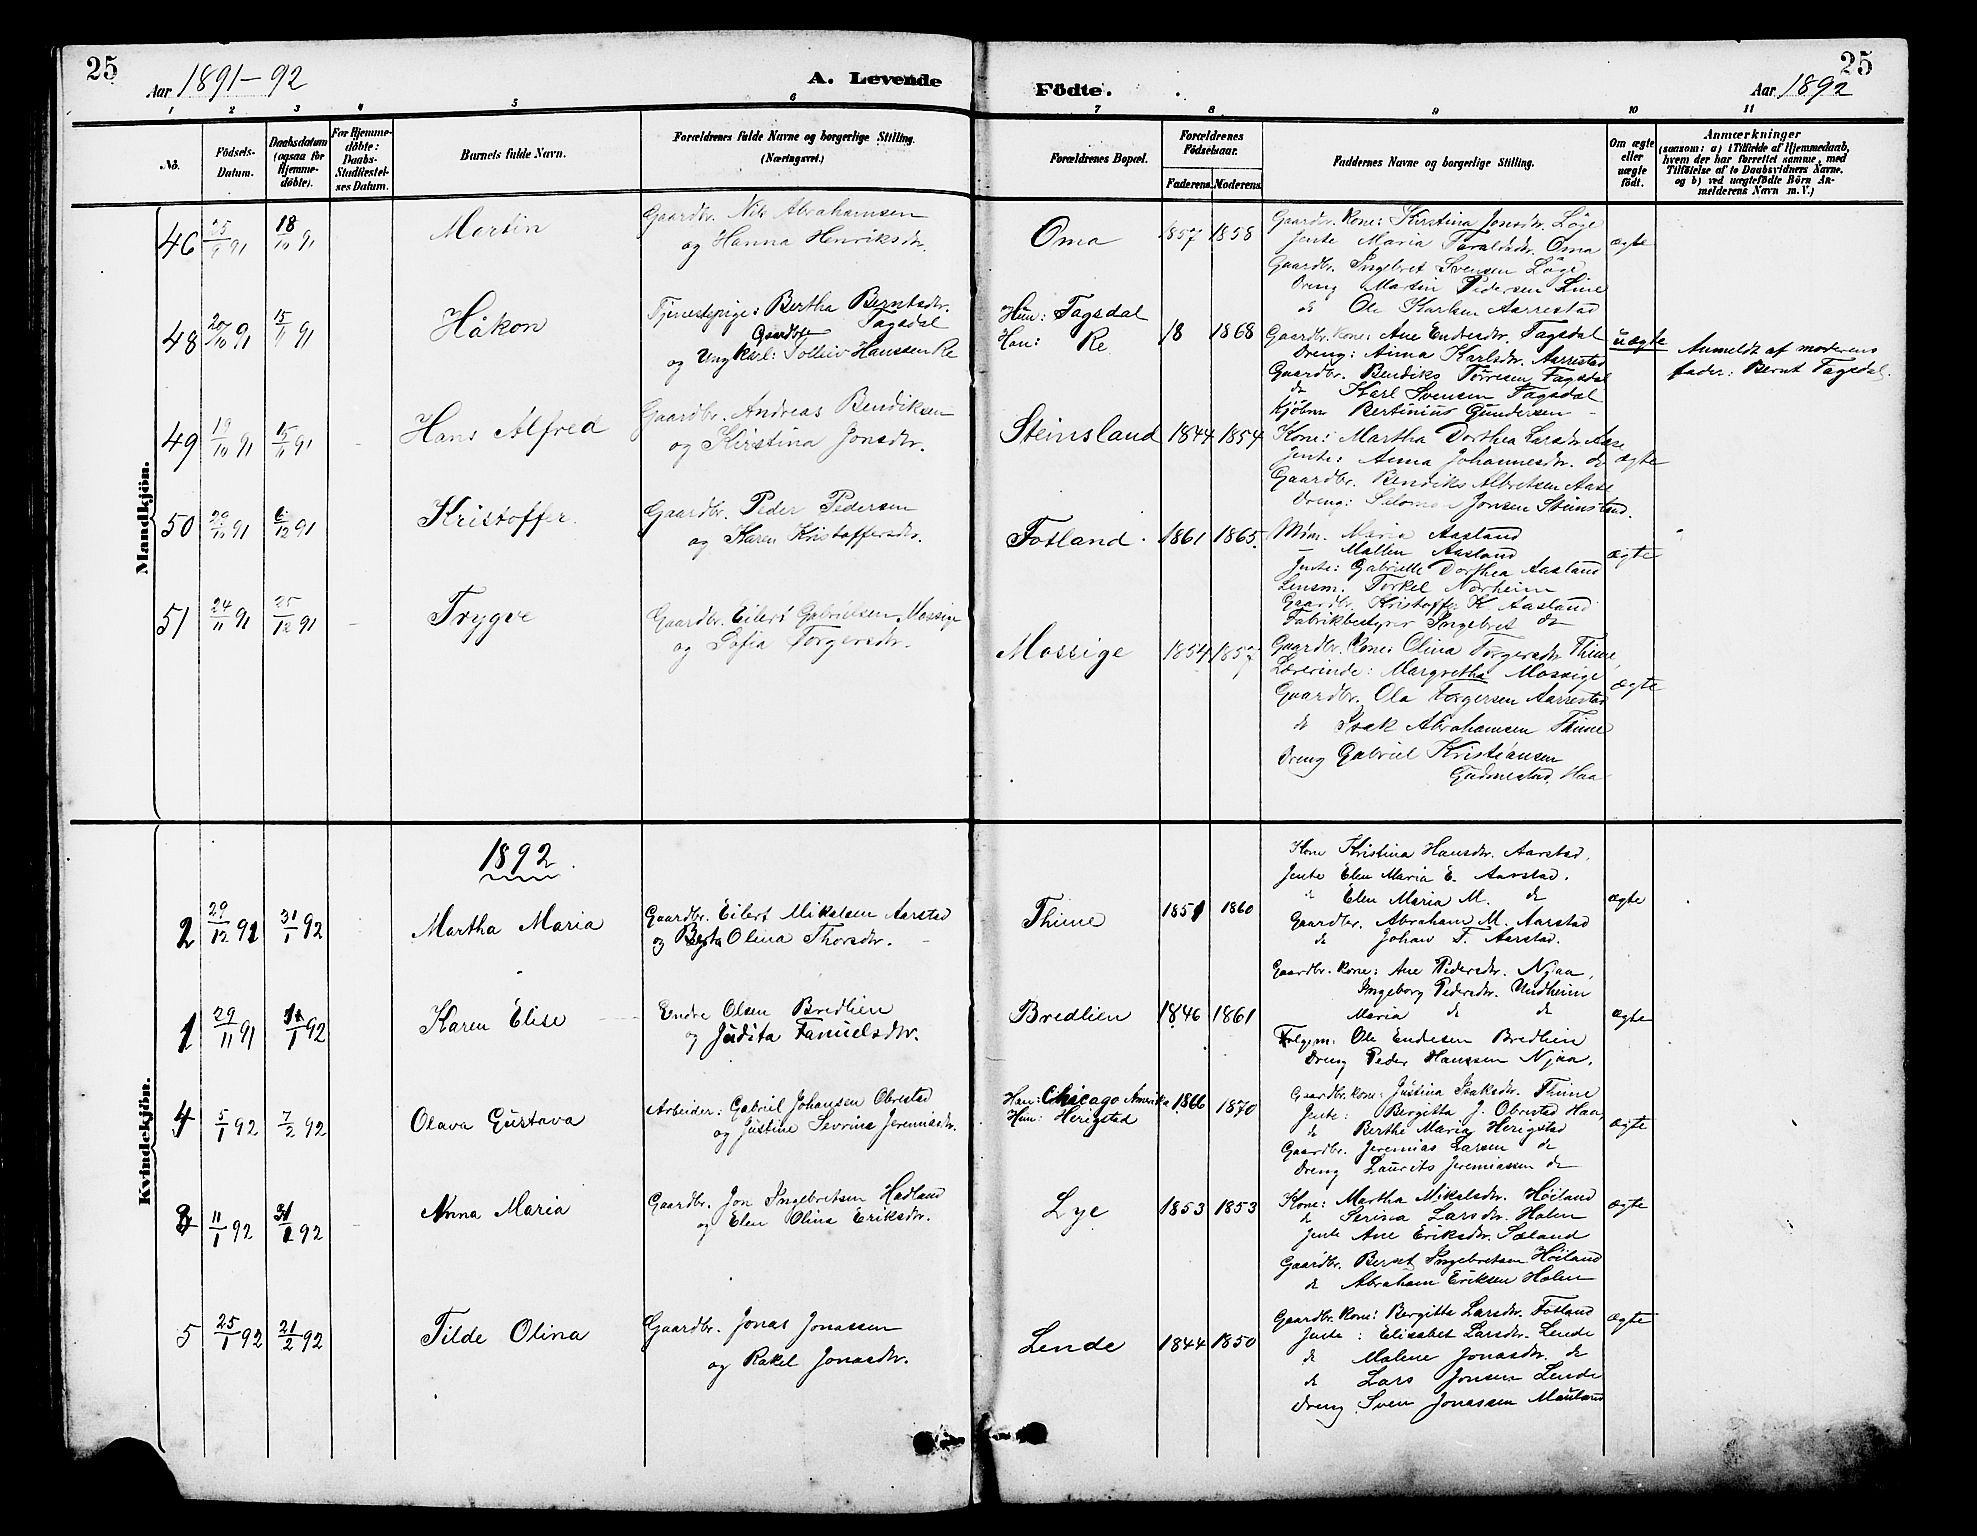 25
Aar 1891-92
A. Levende
Födte.
Aar 1892
25
1 2 3 4 5 6 7 8 9 10 11
No.
Födsels-Datum.
Daabsdatum (ogsaa for Hjemme-döbte).
For Hjemme-döbte: Daabs-Stadfæstel-ses Datum.
Barnets fulde Navn.
Forældrenes fulde Navne og borgerlige Stilling. (Næringsvei.)
Forældrenes Bopæl.
Forældrenes Födselsaar.
Faderens. Moderens.
Faddernes Navne og borgerlige Stilling.
Om ægte eller uægte födt.
Anmærkninger
(saasom: a) i Tilfælde af Hjemmedaab, hvem der har forrettet samme, med Tilföielse af to Daabsvidners Navne, og b) ved uægtefödte Börn An-melderens Navn m. V.)
Mandkjön.
46 25/9 91 18/10 91 Martin
Gaardbr. Nils Abrahamsen
og Hanna Henriksdtr.
Oma 1857 1858
Gaardbr. Kone: Kirstina Jonsdtr. Löge
Jente Maria Taraldsdtr. Oma
Gaardbr. Ingebret Svensen Löge
Dreng Martin Pedersen Line
do Ole Karlsen Aarrestad
ægte
48 20/10 91 15/11 91 Håkon
Tjenestepige: Bertha Berntsdtr.
Tagsdal
og Ungkarl: Tolleiv Hanssen Re
Hun: Tagsdal
Han: Re
18 1868
Gaardbr. Kone: Ane Endresdtr. Tagsdal
Dreng: Anna Karlsdtr. Aarrestad
Gaardbr. Bendiks Tørresen Tagsdal
do Karl Svensen Tagsdal
Kjöbm Bertinius Gundersen
uægte
Anmeldt af moderens
fader: Bernt Tagsdal.
49 19/10 91 15/11 91 Hans Alfred
Gaardbr. Andreas Bendiksen
og Kirstina Jonsdtr.
Steinsland 1844 1854
Kone: Martha Dorthea Larsdtr Aase
Jente: Anna Johannesdtr. do
Gaardbr. Bendiks Albretsen Aase
Dreng: Salomon Jonsen Steinsland.
ægte
50 20/10 91 6/12 91 Kristoffer
Gaardbr. Peder Pedersen
og Karen Kristoffersdtr.
Fotland 1861 1865.
Maria Aasland
— Mallin Aasland
Jente: Gabrielle Dorthea Aasland
Lensm. Torkel Norheim
Gaardbr. Kristoffer K Aasland
Fabrikbestyrer Ingebret do
ægte
51 24/11 91 25/12 91 Trygve
Gaardbr. Eilert Gabrielsen Mossige
og Sofia Torgersdtr.
Mossige 1854 1857
Gaardbr. Kone: Olina Torgersdtr Thime,
Lærerinde: Margretha Mossige
Gaardbr. Ola Torgersen Aarrestad
do Isak Abrahamsen Thime
Dreng Gabriel Kristiansen
Gudmestad, Haa
ægte
Kvindekjön.
1892
2 29/12 91 31/1 92 Martha Maria
Gaardbr. Eilert Mikalsen Aarstad
og Berta Olina Thorsdtr.
Thime 1851 1860
Kone Kristina Hansdtr. Aarstad.
Jente Elen Maria E. Aarstad.
do Elen Maria M. do
Gaardbr. Abraham M. Aarstad
do Johan T. Aarstad.
ægte
1 29/11 91 92 Karen Elise
Endre Olsen Bredlien
og Judita Samuelsdtr.
Bredlien 1846 1861
Gaardbr. Kone: Ane Pedersdtr. Njaa,
Ingeborg Pedersdtr. Undheim
Maria do do
Ole Endresen Bredlien
Dreng Peder Hanssen Njaa,
ægte
4 5/1 92 7/2 92 Olava Gustava
Arbeider: Gabriel Johansen Obrestad
og Justine Sevrina Jeremiasdtr.
Han: Chicago Amerika
Hun: Herigstad
1866 1870
Gaardbr. kone: Justina Isaksdtr. Thime
Jente: Bergitta J. Obrestad Haa,
do Berthe Maria Herigstad
Gaardbr. Jeremias Larsen do
Dreng Laurits Jeremiassen do
ægte
3 11/1 92 31/1 92 Anna Maria
Gaardbr. Jon Ingebretsen Hadland
og Elen Olina Eriksdtr.
Lye 1853 1853
Kone: Martha Mikalsdtr. Höiland
do Serina Larsdtr. Holen
Jente Ane Eriksdtr. Sæland
Gaardbr. Bernt Ingebretsen Höiland
do Abraham Eriksen Holen
ægte
5 25/1 92 21/2 92 Tilde Olina
Gaardbr. Jonas Jonassen
og Rakel Jonasdtr.
Lende 1844 1850
Gaardbr. Kone: Bergitte Larsdtr. Fotland
Jente: Elisabet Larsdtr. Lende
do Malene Jonasdtr. do
do Lars Jonsen Lende
Dreng Sven Jonassen Mauland
ægte